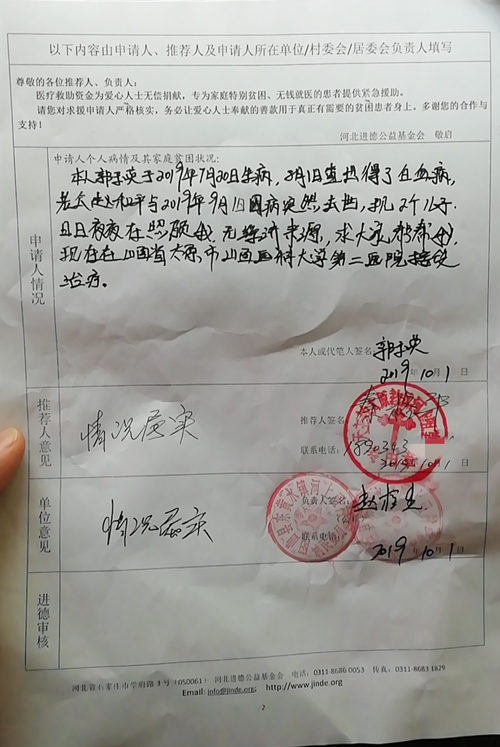 以下内容由申请人、推荐人及申请人所在单位/村委会/居委会负责人填写
尊敬的各位推荐人、负责人：
医疗救助资金为爱心人士无偿捐献，专为家庭特别贫困、无钱就医的患者提供紧急援助。
请您对求援申请人严格核实，务必让爱心人士奉献的善款用于真正有需要的贫困患者身上。多谢您的合作与
支持！
河北进德公益基金会 敬启
申请人情况
申请人个人病情及其家庭贫困状况：
本人郭 英于2019年7月20日生病，8月1日查出得了白血病，
老公赵和平与2019年9月1日因病突然去世，现2个儿子
日日夜夜在照顾我，无经济来源，求大家帮帮我，
现在在山西省太原市山西医科大学第二医院接受
治疗。
本人或代笔人签名：郭 英
2019年10月1日
推荐人意见
情况属实
推荐人签名：
联系电话：
2019 10 1日
单位意见
情况属实
负责人签名：赵
联系电话：
2019年10月1日
进德审核
河北省石家庄市学府路3号（050061） 河北进德公益基金会 电话：0311-8686 0053 传真：0311-8683 1829
Email: info@jinde.org http://www.jinde.org
2